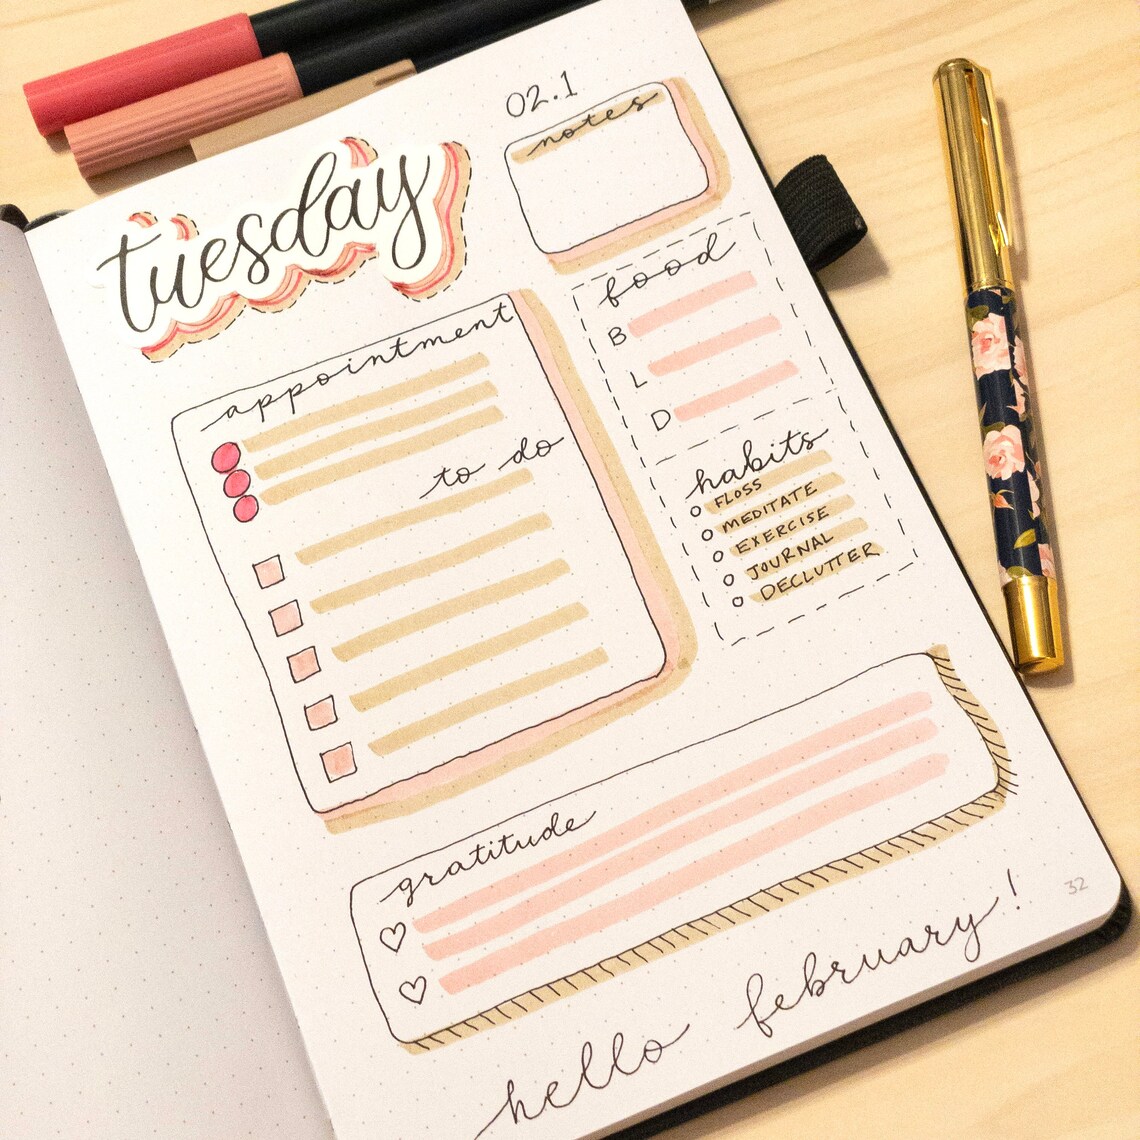 tuesday
02.1
notes
appointment
to do
food
B
L
D
habits
FLOSS
MEDITATE
EXERCISE
JOURNAL
DECLUTTER
gratitude
32
hello february!